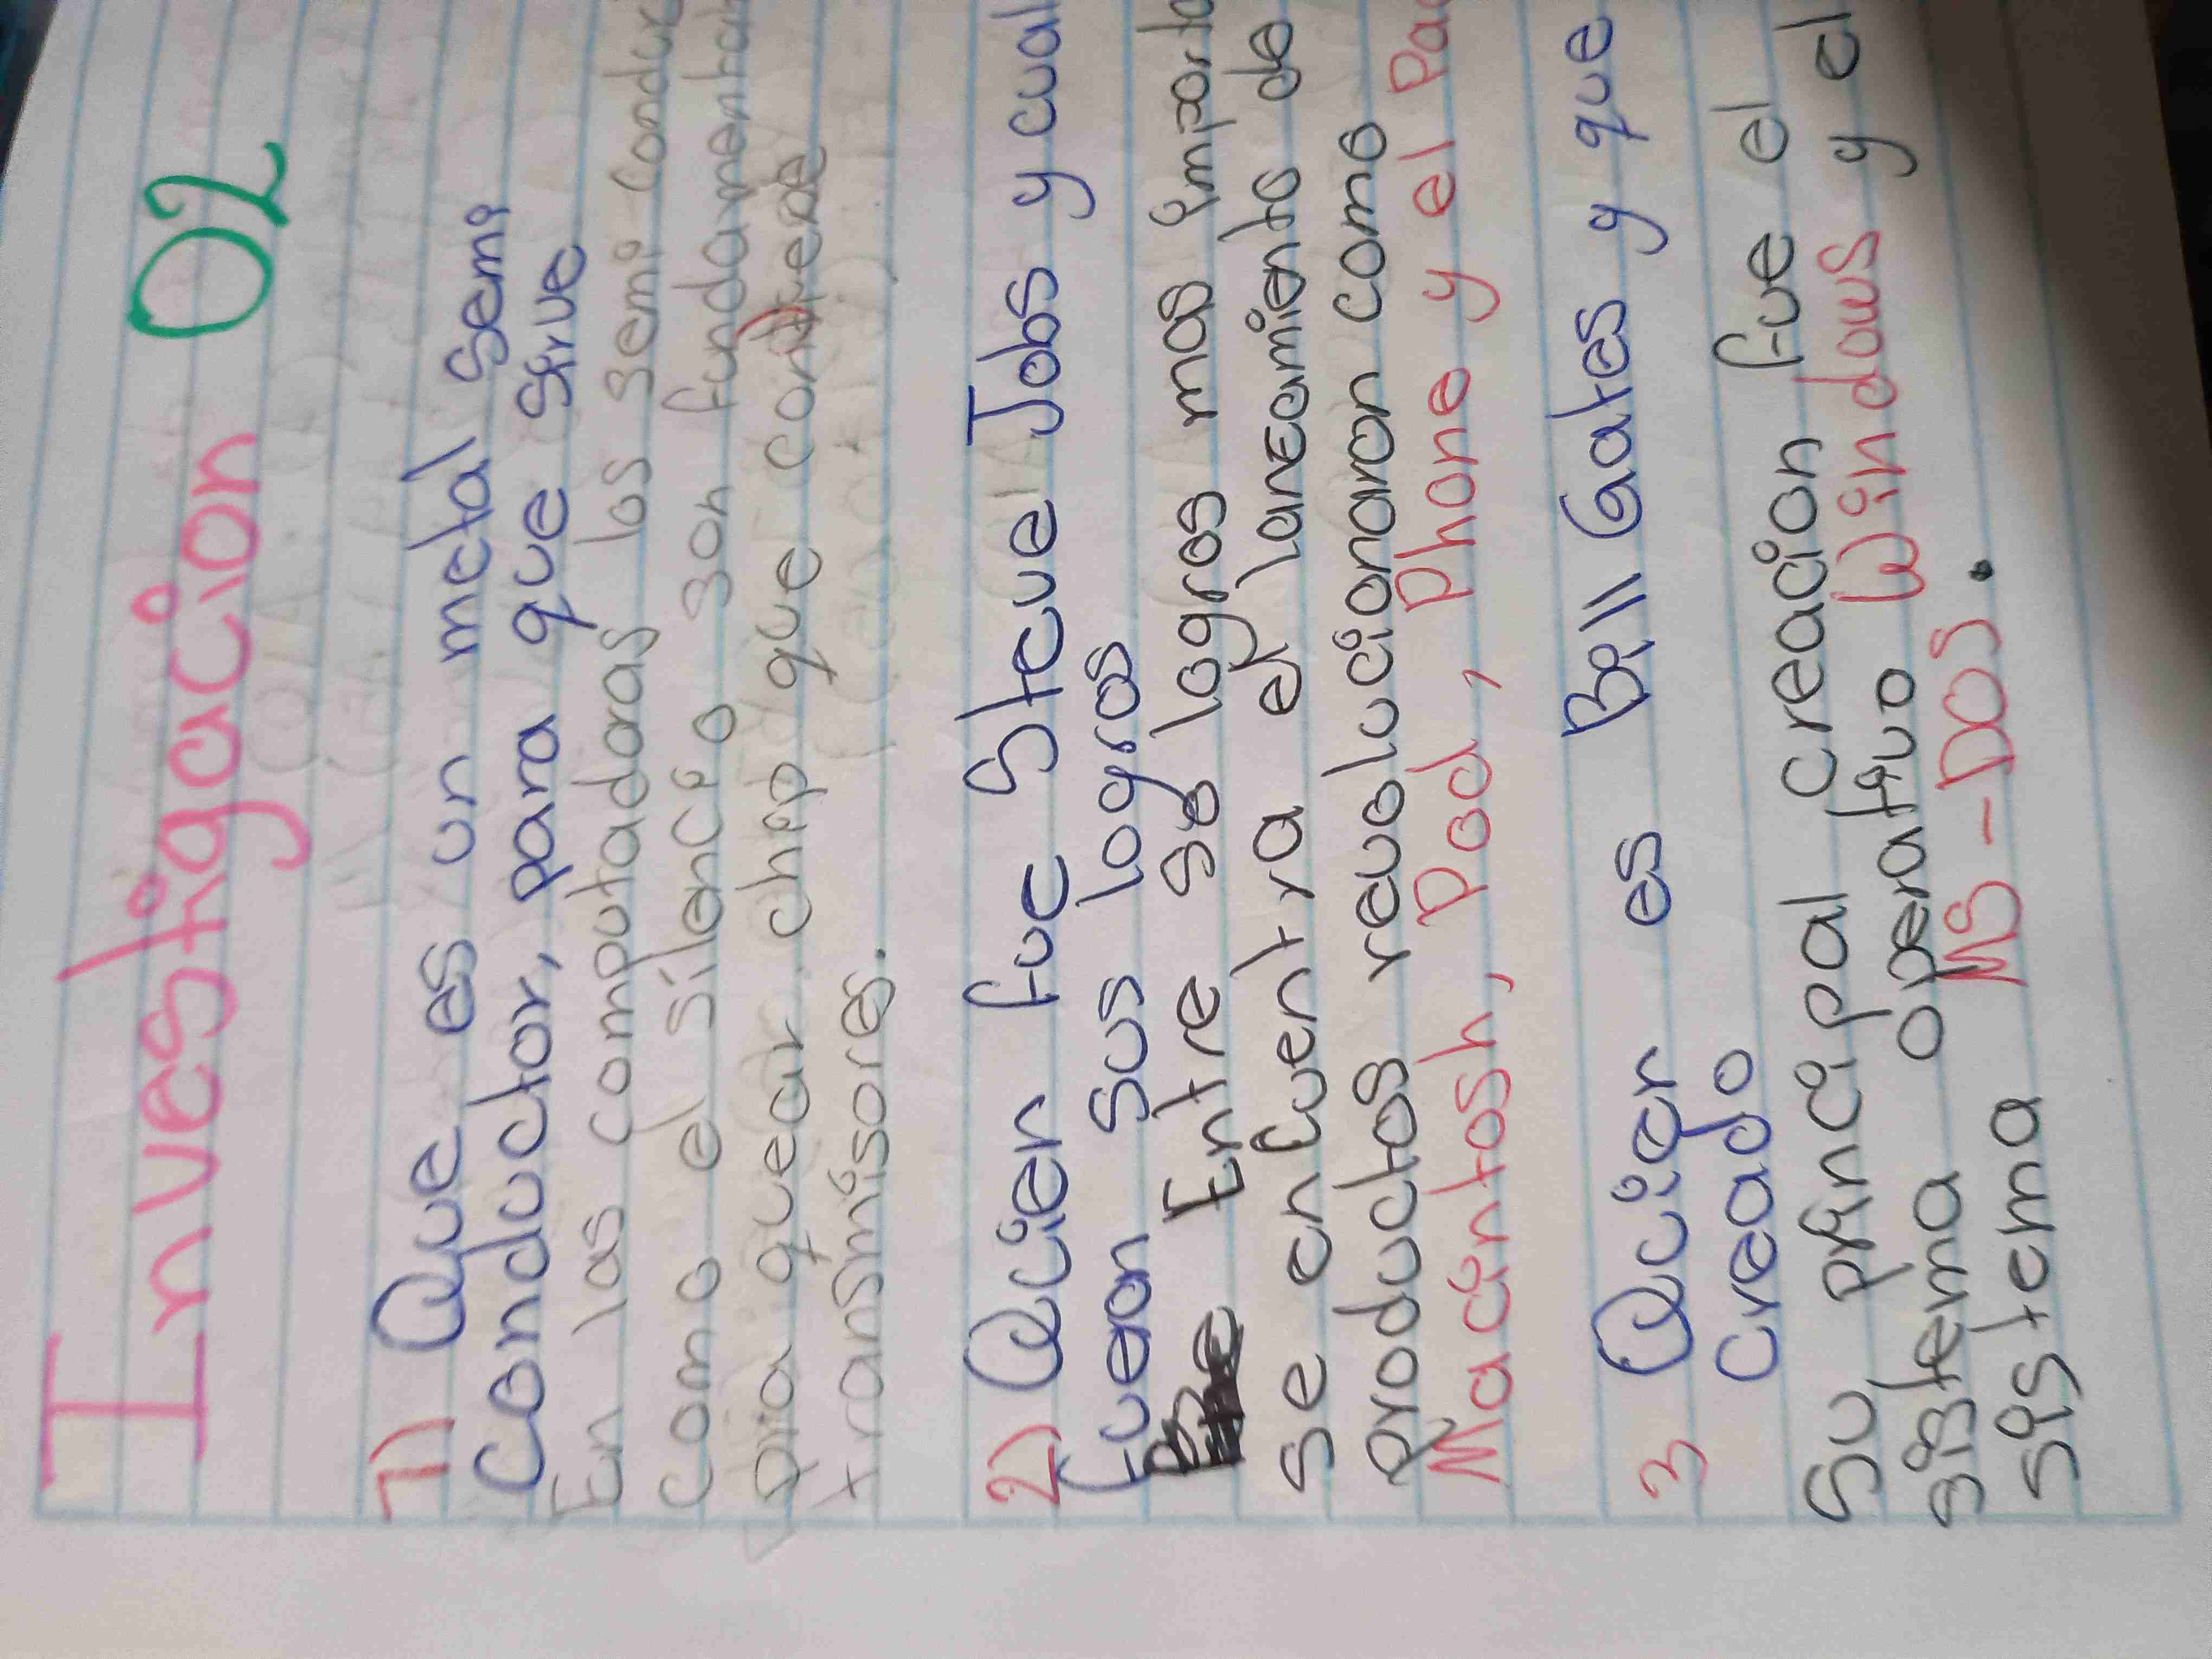 Investigacion 02
1) Que es un metal semi
Conductor, para que sirve
En las computadoras los semi conduc
como el silencio son fundamental
pia quear chip que contiene
transmisores.
2) Qcien fue Steve Jobs y cual
fueon sus logros
Entre so logros mas importa
se enfuentra el lanecamiento de
productos revolucionaron como
Macintosh, Pod, Phone y el Pa
3 Qcien es Bill Gates y que
creado
Su principal creacion fue el
sistema operativo Windows y el
sistema MS-DOS.